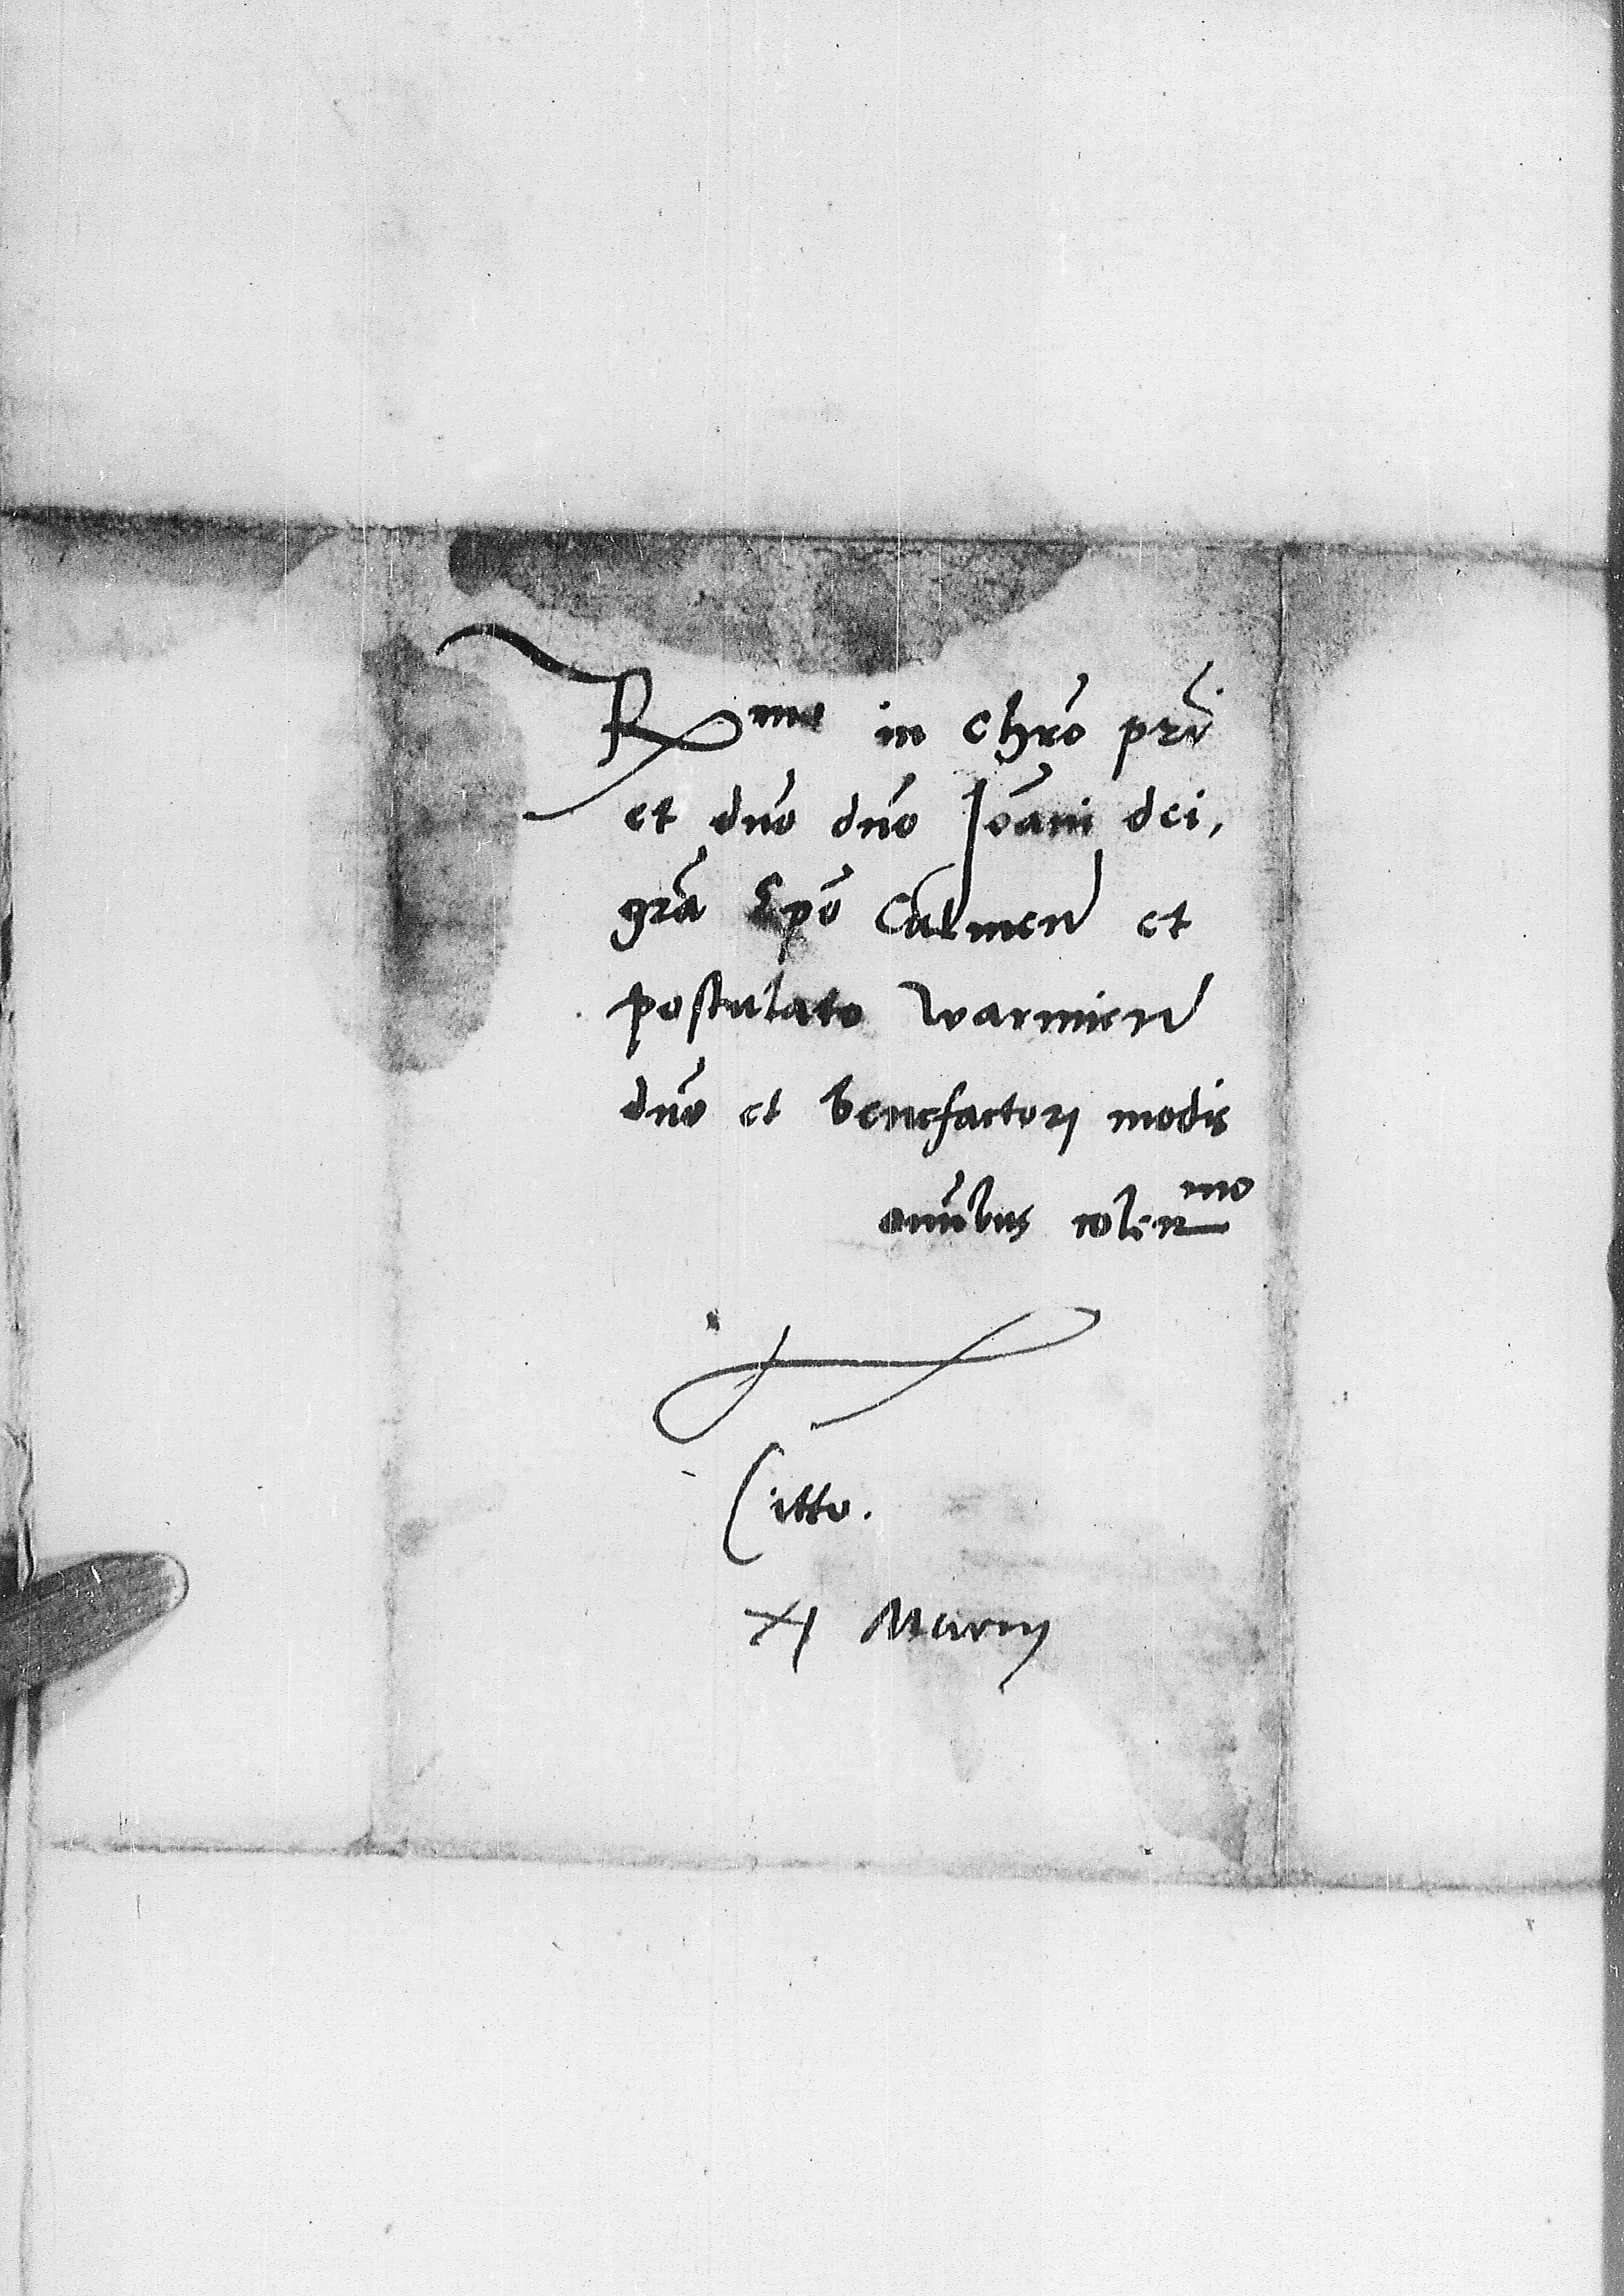 R^mo in chro̅ pri̅
et dn̅o dn̅o Joa̅ni dei,
gra̅ Epo̅ Culmen̅ et
postulato warmien̅
dn̅o et benefactori modis
om̅ibus colen^mo
Citto.
XI Marcij